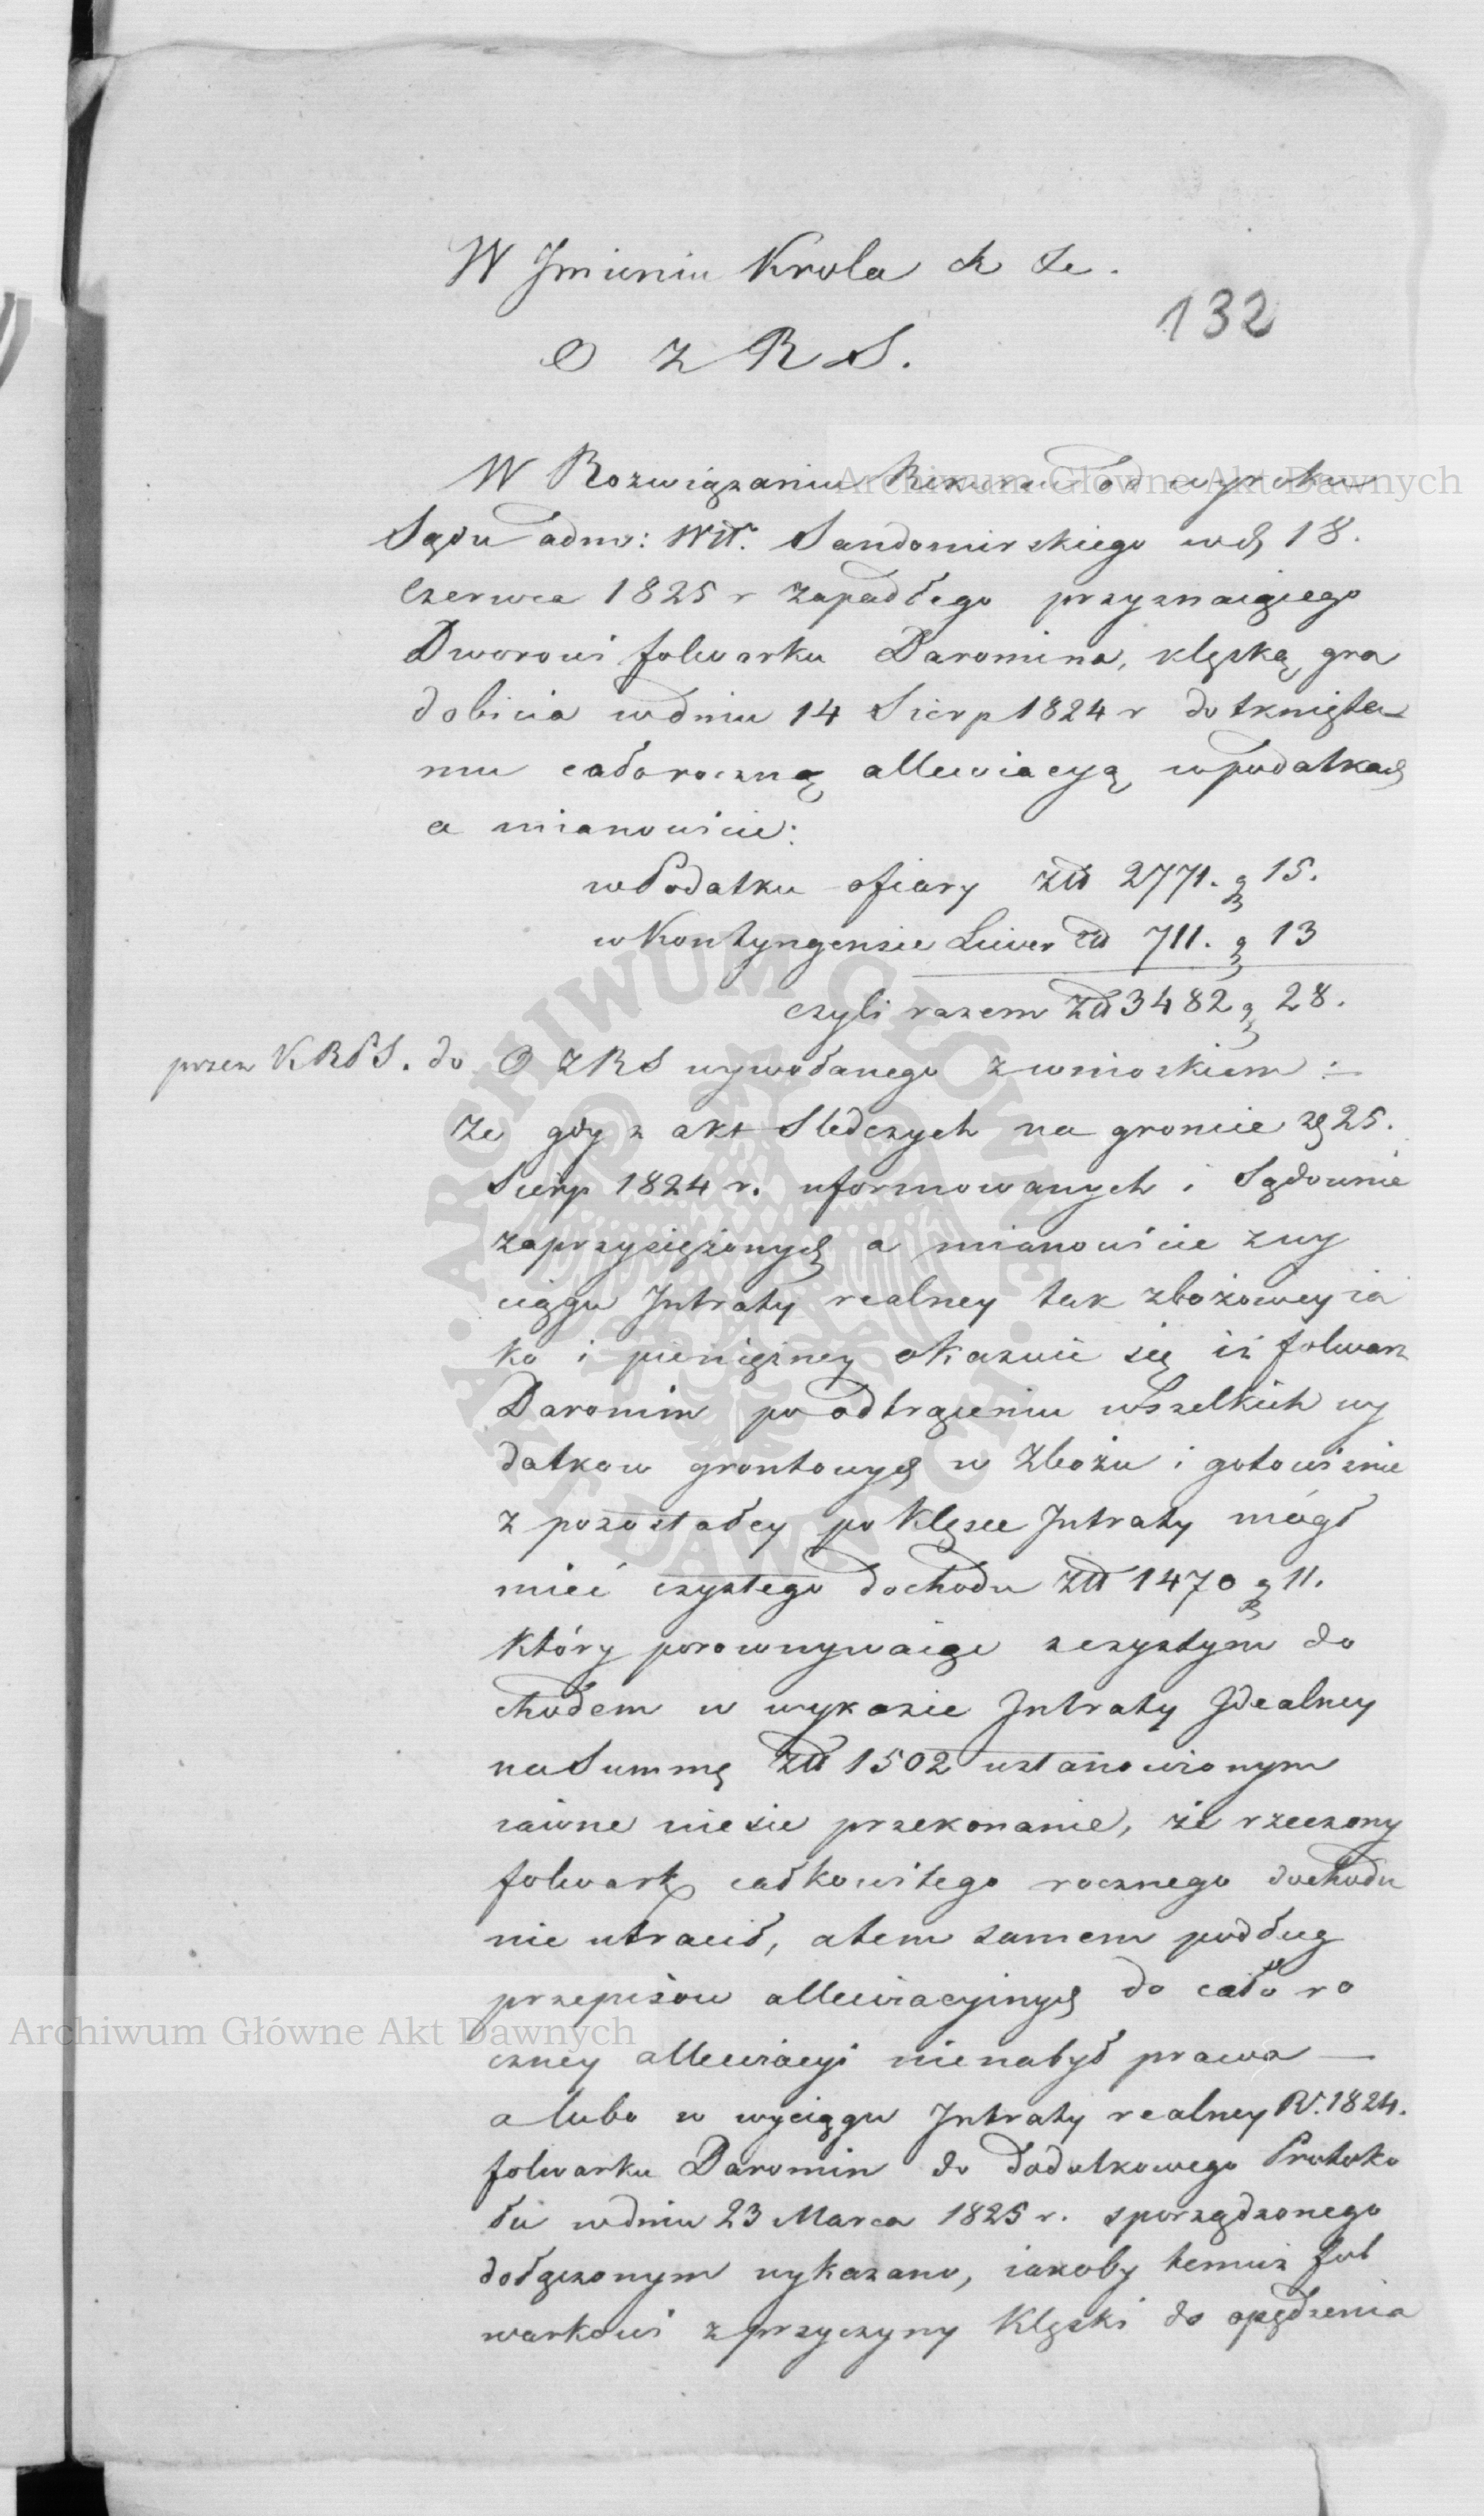 W Jmieniu Krola &c &c.
132
O Z R S.
W Rozwiązaniu Rekursu od wyroku
Sądu adm: Wdt. Sandomirskiego wd 18.
Czerwca 1825 r zapadłego przyznaiącego
Dworowi folwarku Daromina, klęską gra
dobicia w dniu 14 Sierp 1824 r dotknięte
mu całoroczną allewiacyą w podatkach
a mianowicie:
w Podatku ofiary Złł 2771. g 15.
w Kontyngensie Liwer złł 711. g 13
czyli razem Złł 3482 g 28.
przez KRPS. do O Z R S wywołanego z wnioskiem :-
Ze gdy z akt Sledczych na groncie d 25.
Sierp 1824 r. uformowanych i Sądownie
zaprzysiężonych a mianowicie z wy
ciągu Jntraty realney tak zbożowey ia
ko i pienięzney okazuie się iż folwark
Daromin po odtrąceniu wszelkich wy
datkow grontowych w Zbożu i gotowiznie
z pozostałey po Klęsce Jntraty mógł
mieć czystego dochodu Złł 1470 g 11.
Który porownywaiąc z czystym do
chodem w wykazie Jntraty Jdealney
na Summę Złł 1502 ustanowionym
iawne niesie przekonanie, że rzeczony
folwark całkowitego rocznego dochodu
nie utracił, a tem samem podług
przepisow allewiacyinych do cało ro
czney allewiacyi nienabył prawa —
a lubo w wyciągu Jntraty realney R. 1824.
folwarku Daromin do dodatkowego Protoko
łu w dniu 23 Marca 1825 r. sporządzonego
dołączonym wykazano, iakoby temuz fol
warkowi z przyczyny Klęski do opędzenia
Archiwum Główne Akt Dawnych
Archiwum Główne Akt Dawnych
ARCHIWUM GŁÓWNE AKT DAWNYCH